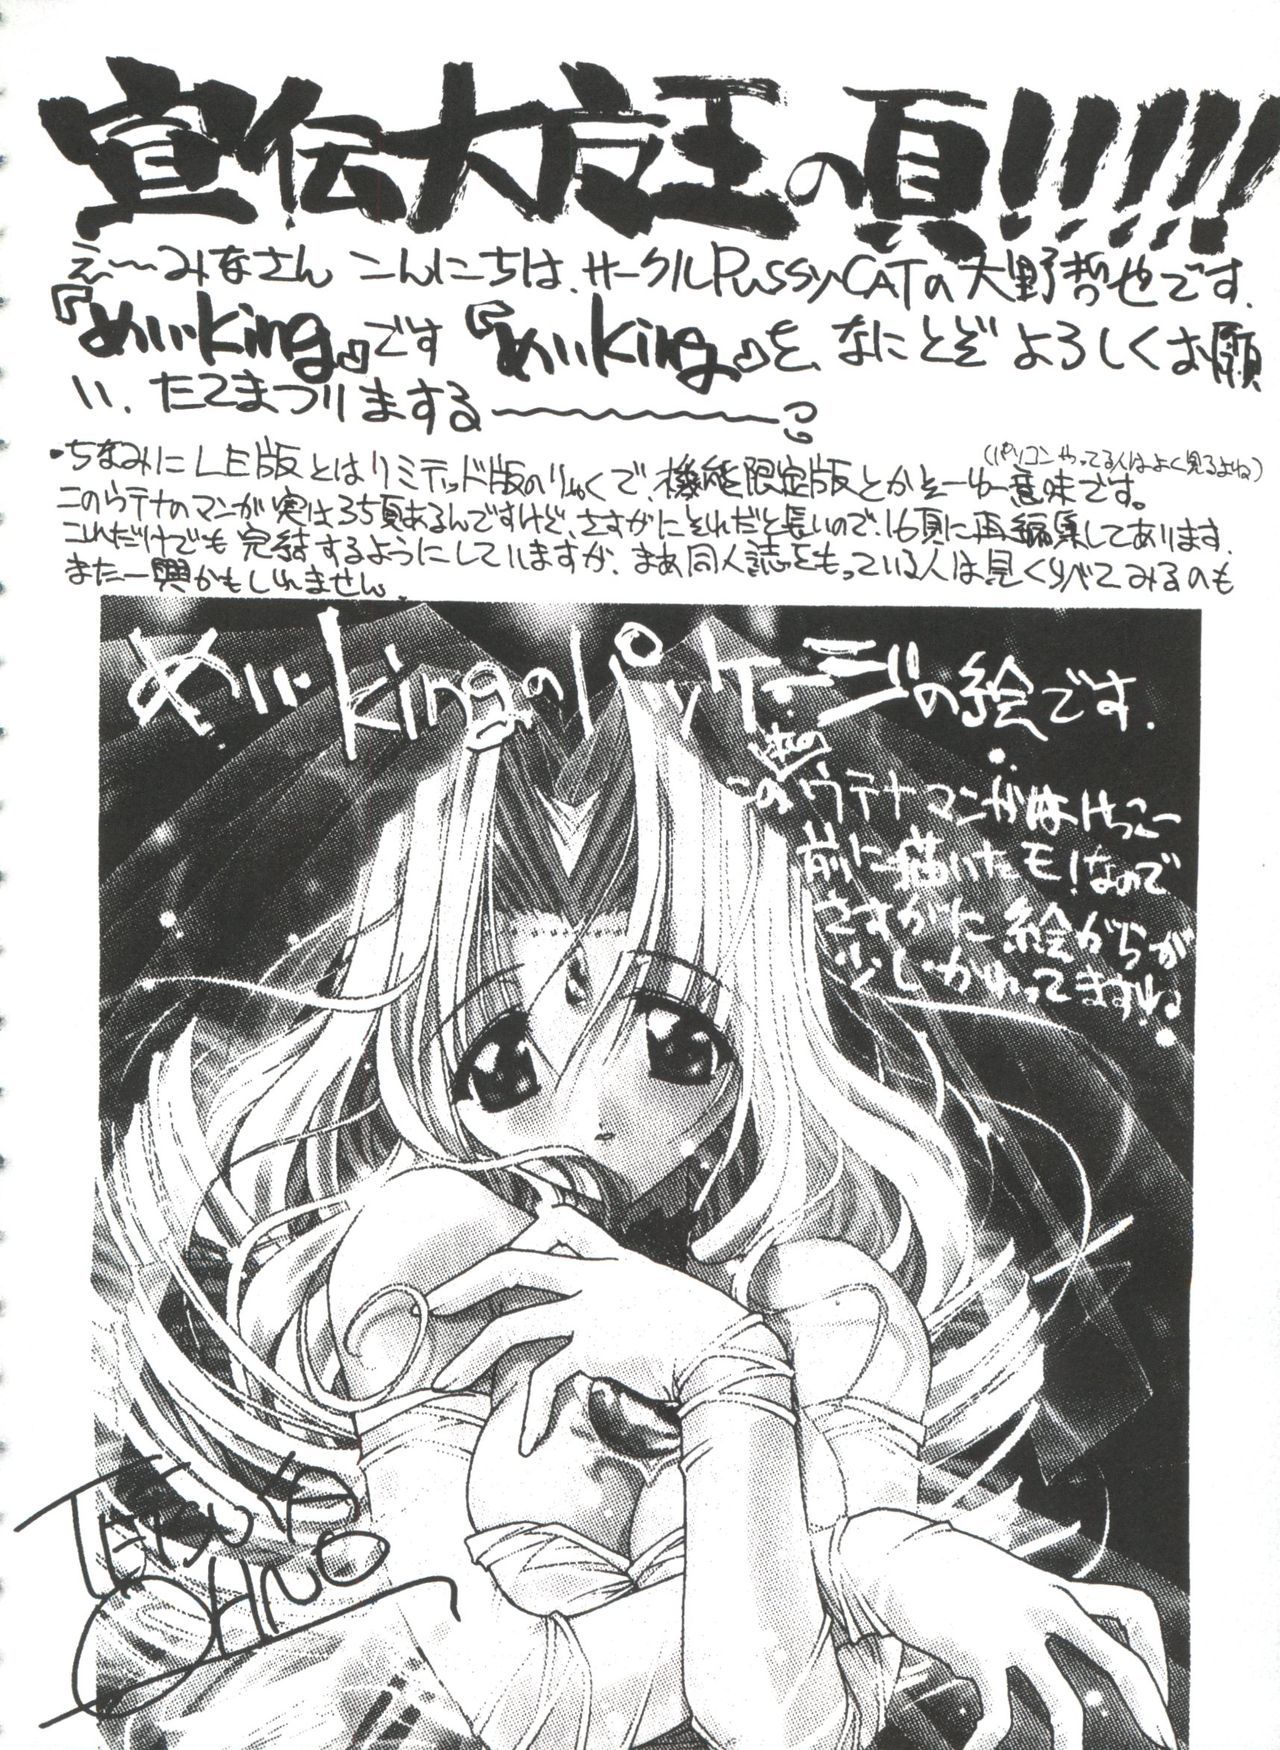 宣伝大女王の頁!!!!!
え〜みなさん こんにちは、サークルPussyCATの大野哲也です.
『めいking』です『めいking』を、なにとぞ よろしくお願
い、たてまつりまする〜
(パソコンやってる人はよく見るよね)
・ちなみにLE版とはリミテッド版のりゃくで、機能限定版とかそーゆー意味です。
このウテナのマンガ実は35頁あるんですけど、さすがにそれだと長いので、16頁に再編集してあります.
これだけでも完結するようにしていますが、まあ同人誌をもっている人は見くらべてみるのも
また一興かもしれません.
めいkingのパッケージの絵です.
このウテナマンガはけっこー
前に描いたモノなので
さすがに絵がらが
少しかわってますね
TETSUYA
OHNO